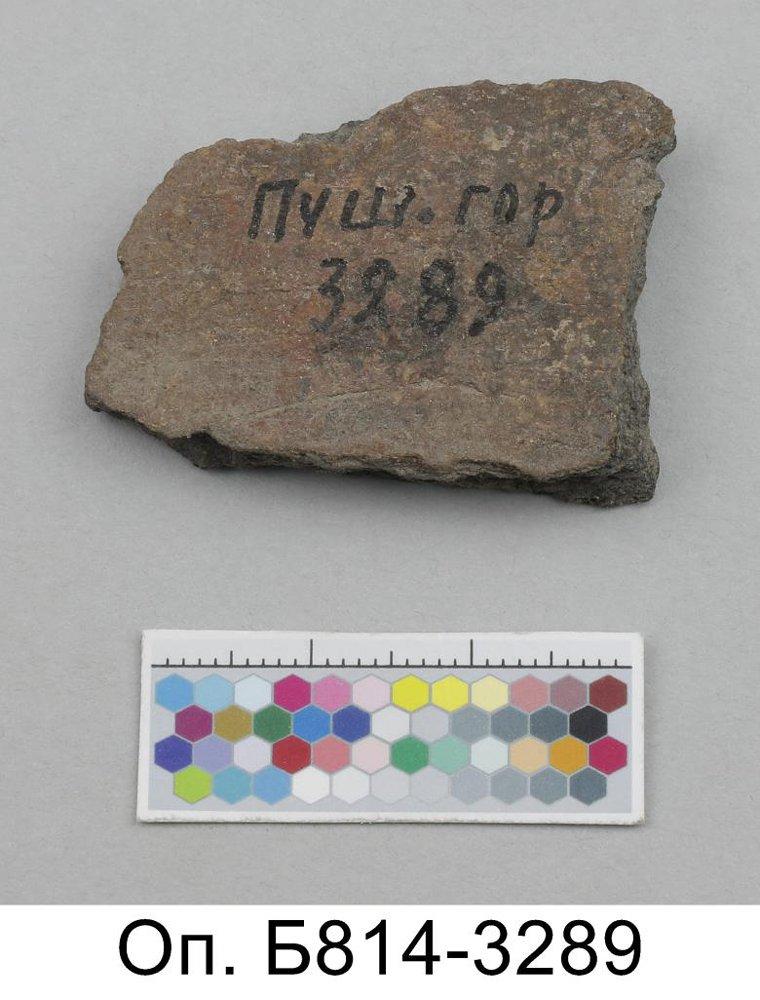 Пуш. гор
3289
Оп. Б814-3289